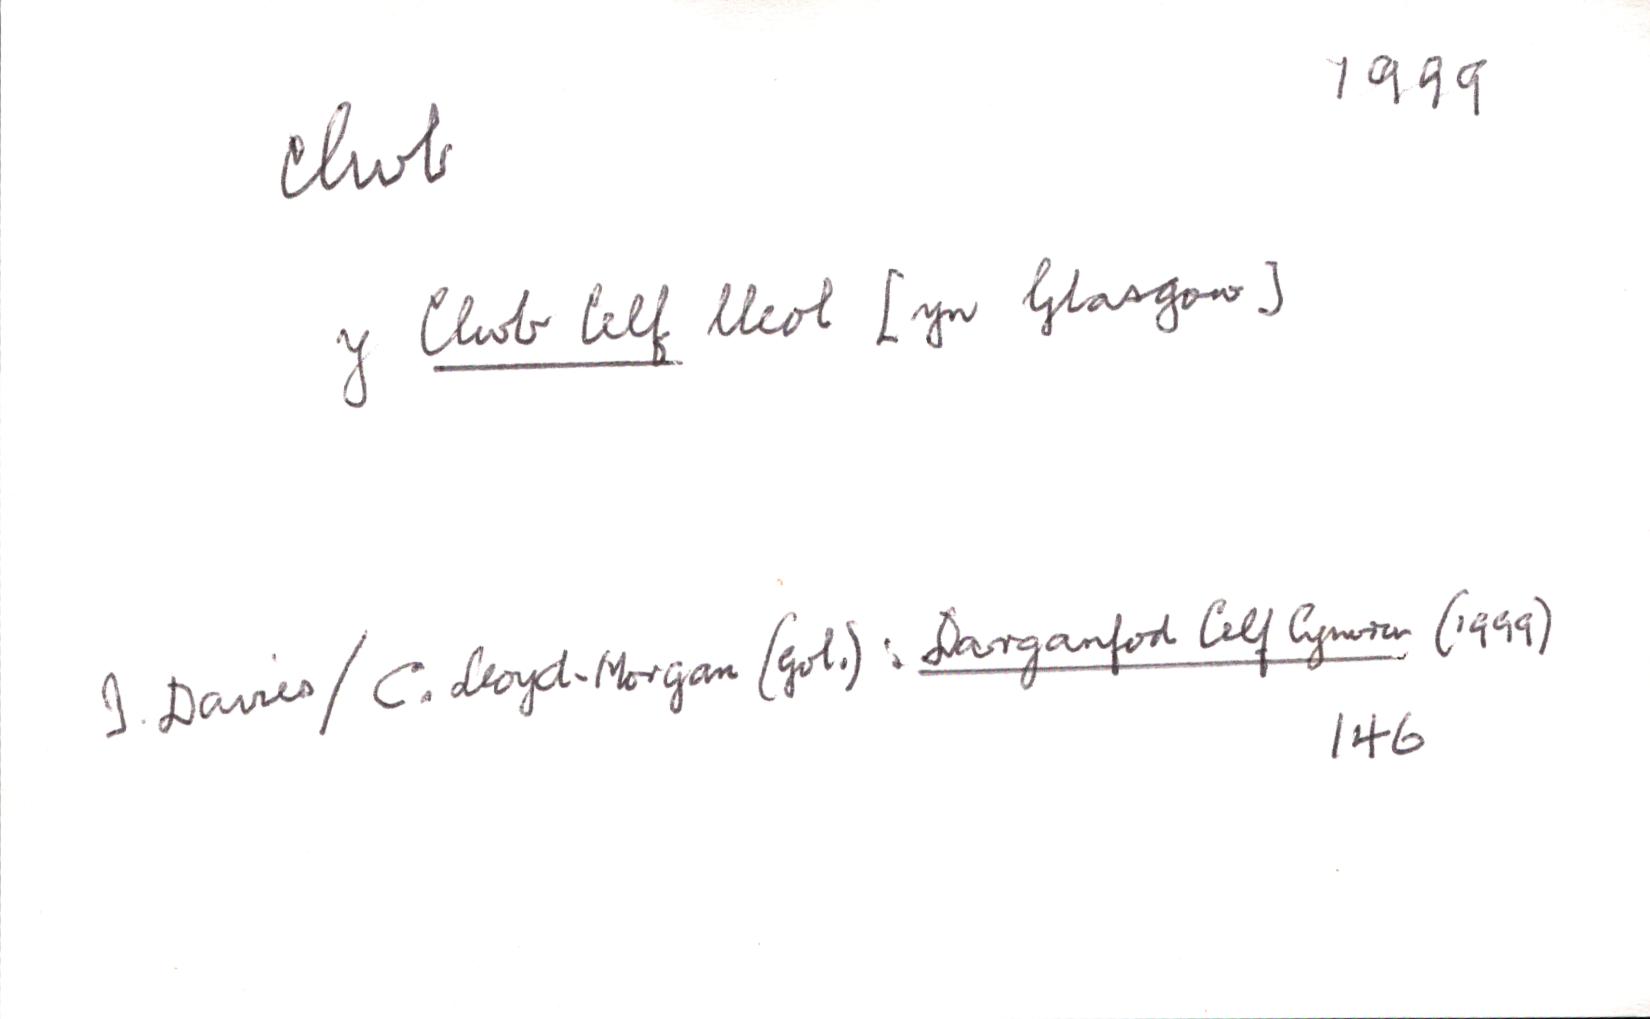 1999
clwb
y Clwb Celf lleol [yn Glasgow]
I. Davies / C. Lloyd-Morgan (gol.) : Darganfod Celf Cymru (1999)
146